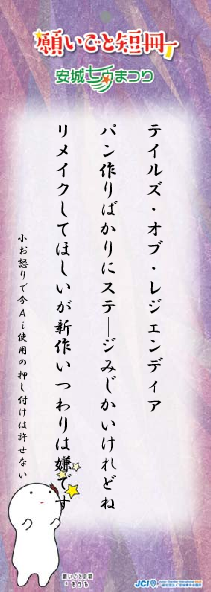 願いごと短冊
安城七夕まつり
テイルズ・オブ・レジェンディア
パン作りばかりにステージみじかいけれどね
リメイクしてほしいが新作いつわりは嫌です
小お怒りで今Ai使用の押し付けは許せない
願いごと短冊
JCI